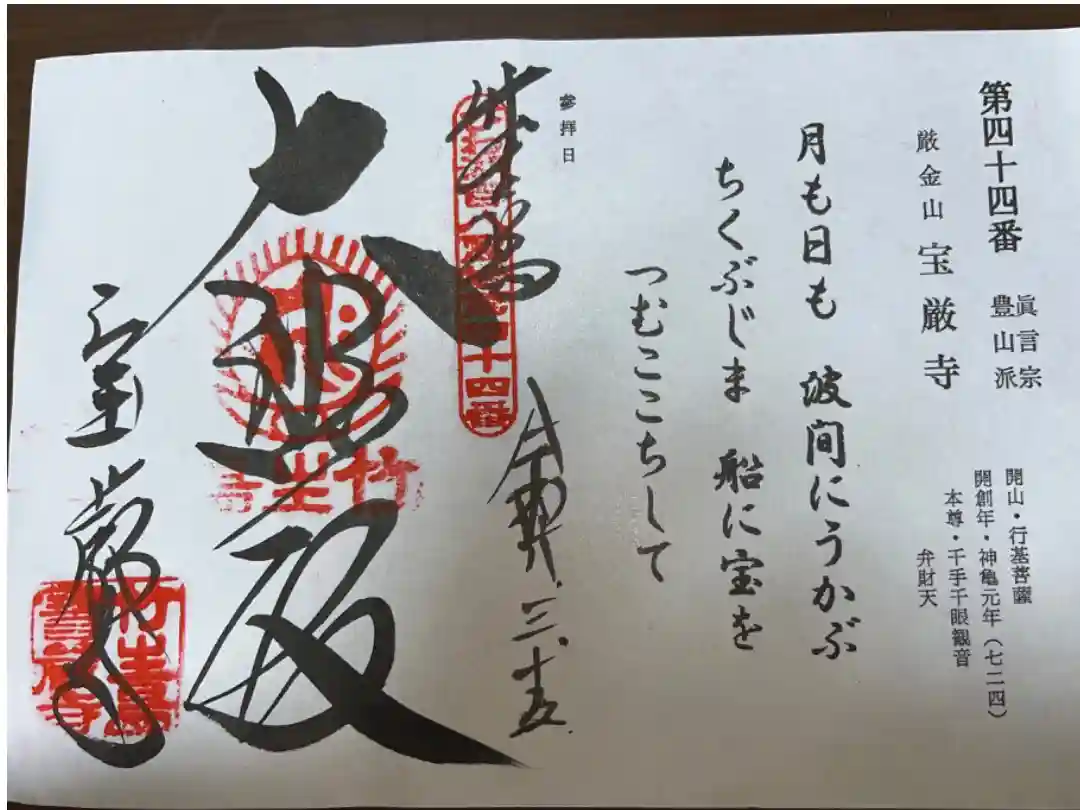 第四十四番
眞言宗
豊山派
厳金山 宝厳寺
開山・行基菩薩
開創年・神亀元年(七二四)
本尊・千手千眼観音
弁財天
月も日も 波間にうかぶ
ちくぶじま 船に宝を
つむここちして
参拝日
十四番
大悲殿
竹生
竹生島